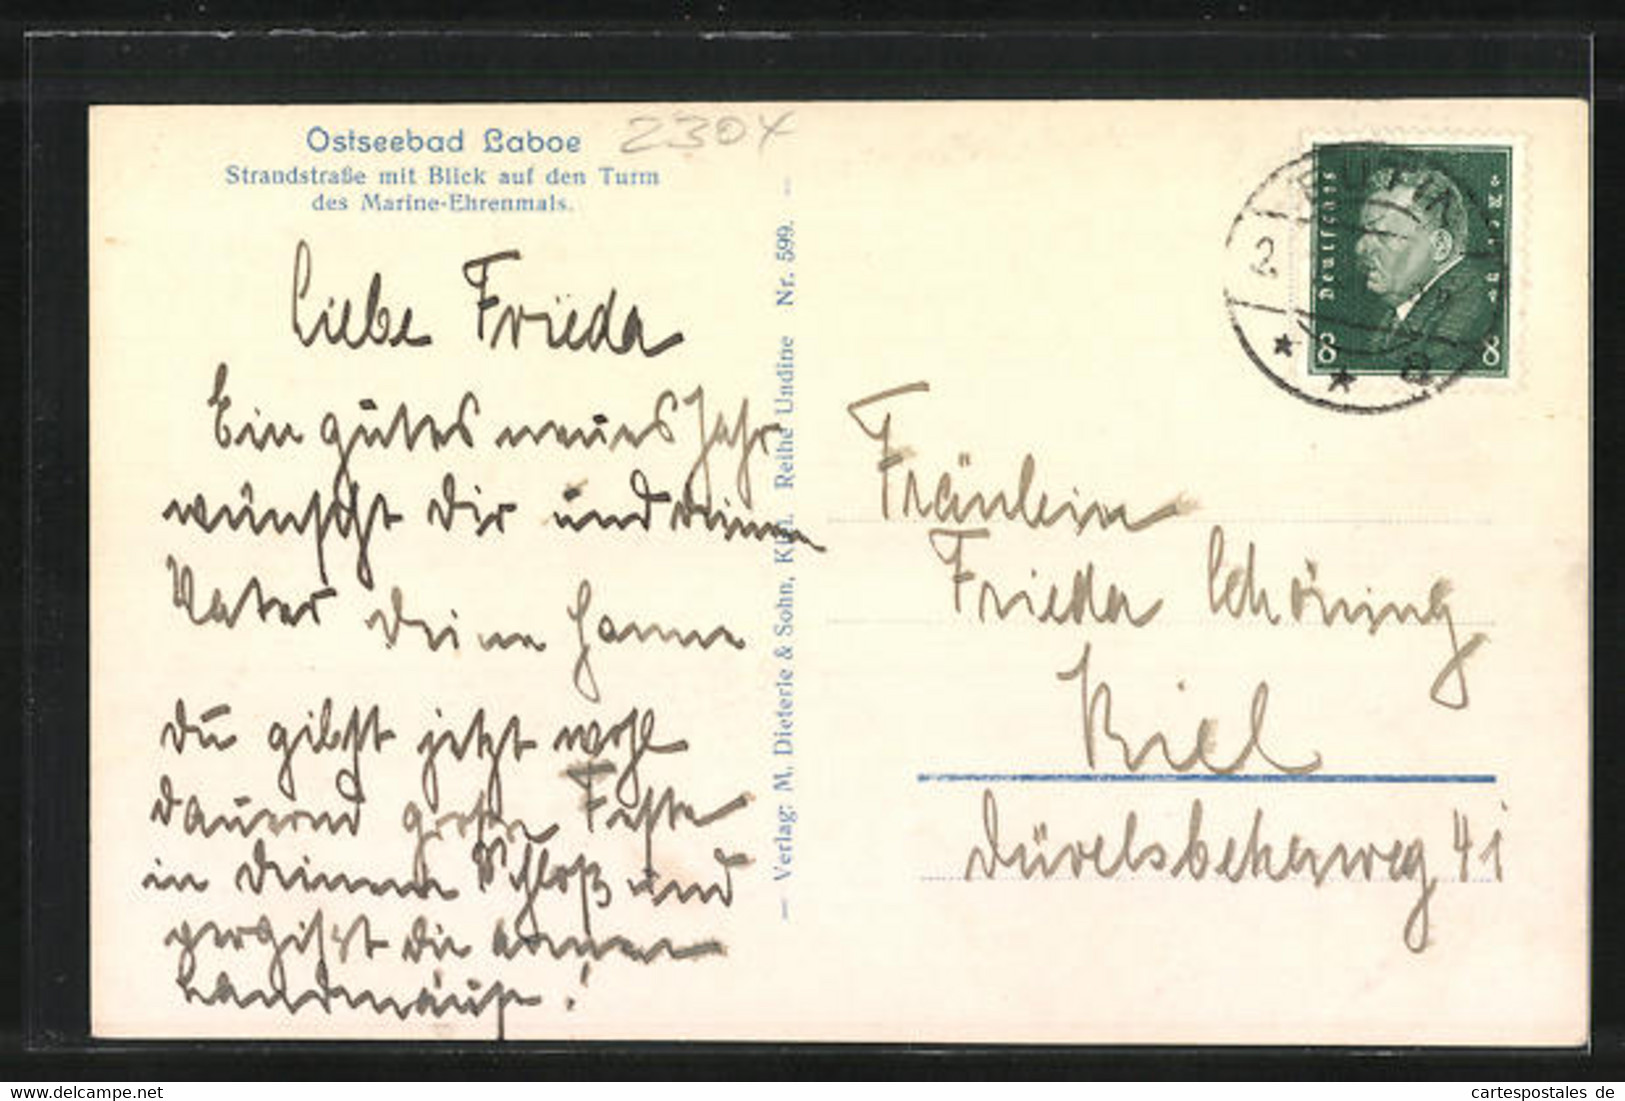 Ostseebad Laboe
Strandstraße mit Blick auf den Turm
des Marine-Ehrenmals.
2304
Liebe Frieda
Ein gutes neues Jahr
wünscht Dir und deinem
Vater deine Hanne
Du gibst jetzt wohl
dauernd große Feste
in deinem Schloß und
vergißt die armen
Landmäuse!
— Verlag: M. Dieterle & Sohn, Kiel. Reihe Undine Nr. 599. —
EUTIN
2.
Deutsches Reich
8 8
Fräulein
Frieda Schöning
Kiel
Düvelsbekerweg 41
© www.oldthing.net
cartespostales de